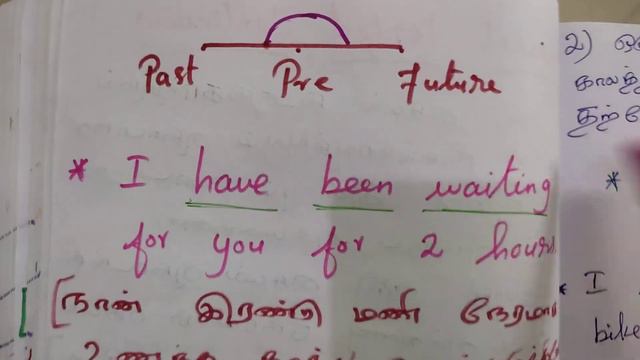 Past Pre Future
* I have been waiting
for you for 2 hours
[நான் இரண்டு மணி நேரமாக
2)
காலத்
*
I
bike